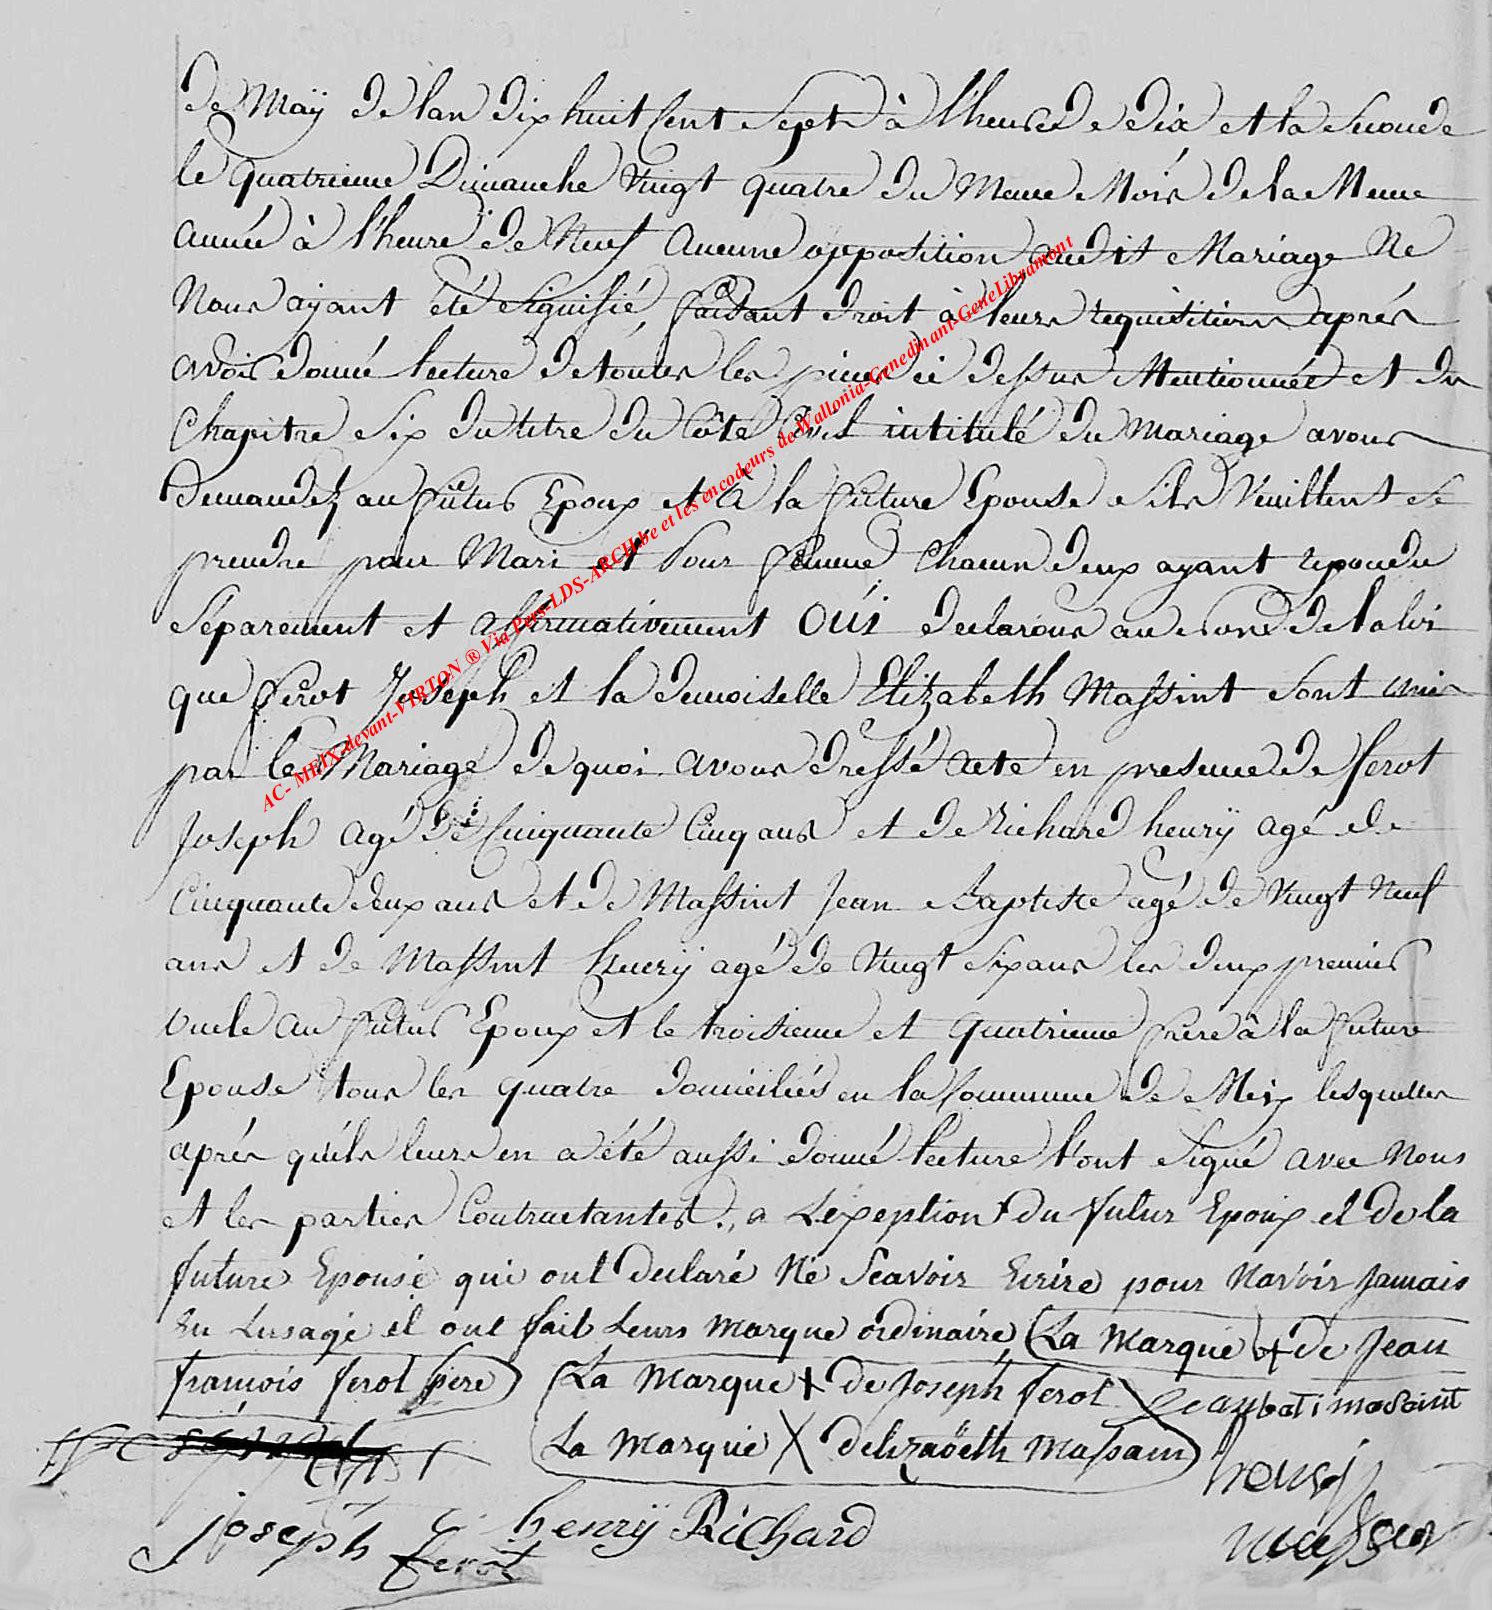 de Maÿ de lan dix huit Cent Sept à l'heure de dix et la Seconde
le quatrieme Dimanche Vingt quatre du Meme Mois de la Meme
année à l'heure de Neuf Aucune opposition audit Mariage Ne
Nous ayant été Signifié, faisant droit à leurs requisitions après
avoir donné lecture de toutes les pieces ci dessus Mentionnée et du
Chapitre Six du titre du Côte Civil intitulé du Mariage avons
demandez au futur Epoux et à la future Epouse s'ils Veuillent se
prendre pour Mari et pour femme Chacun deux ayant repondu
Séparement et affirmativement Oüi declarons au nom de la loi
que ferot Joseph et la demoiselle Elizabeth Massint sont unis
par le Mariage de quoi avons dressé acte en presence de ferot
Joseph agé de Cinquante Cinq ans et de Richard henrÿ agé de
Cinquante deux ans et de Massint Jean Baptiste agé de Vingt Neuf
ans et de Massint henrÿ agé de Vingt Six ans les deux premiers
oncle au futur Epoux et le troisieme et quatrieme frere à la future
Epouse tous les quatre domiciliés en la Commune de Meix lesquelles
après qu'ils leurs en a été aussi donné lecture l'ont Signé avec Nous
et les parties Contractantes., a Lexeption du futur Epoux et de la
future Epouse qui ont declaré Ne Scavoir Ecrire pour Navoir Jamais
Eu Lusage il ont fait Leurs Marque ordinaire La Marque + de Jean
francois ferot pere La Marque + de Joseph ferot Jeanbati masaint
La Marque X delizaöeth Massain henri
Joseph ferot henrÿ Richard
AC- MEIX-devant-VIRTON ® Via Pers-LDS-ARCH.be et les encodeurs de Wallonia-Genedinant-GeneLibramont